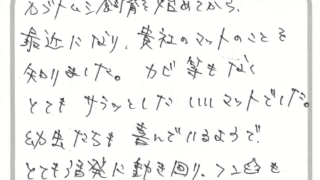 カブトムシ飼育を始めてから、
最近になり、貴社のマットのことを
知りました。カビ等もなく
とても サラッとした いいマットでした。
幼虫たちも喜んでいるようで、
とても活発に動き回り、フンを